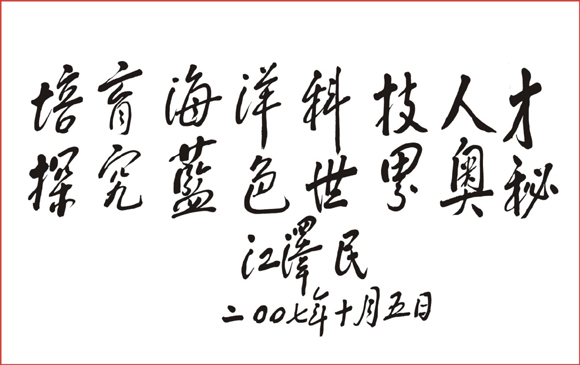 培育海洋科技人才
探究藍色世界奥秘
江澤民
二00七年十月五日